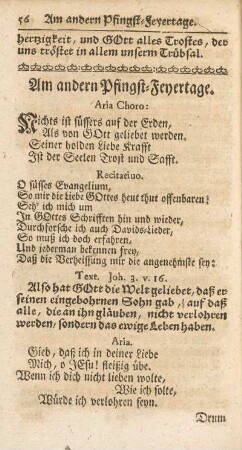 56 Am andern Pfingst-Feyertage.
hertzigkeit, und GOtt alles Trostes, der
uns tröstet in allem unserm Trübsal.
Am andern Pfingst-Feyertage.
Aria Choro:
Nichts ist süssers auf der Erden,
Als von GOtt geliebet werden.
Seiner holden Liebe Krafft
Ist der Seelen Trost und Safft.
Recitativo.
O süsses Evangelium,
So mir die Liebe GOttes heut thut offenbaren!
Seh' ich mich um
In GOttes Schrifften hin und wieder,
Durchforsche ich auch Davids-Lieder,
So muß ich doch erfahren,
Und jederman bekennen frey,
Daß die Verheissung mir die angenehmste sey:
Text. Joh. 3. v. 16.
Also hat GOtt die Welt geliebet, daß er
seinen eingebohrnen Sohn gab, auf daß
alle, die an ihn gläuben, nicht verlohren
werden, sondern das ewige Leben haben.
Aria.
Gieb, daß ich in deiner Liebe
Mich, o JEsu! fleißig übe.
Wenn ich dich nicht lieben wolte,
Wie ich solte,
Würde ich verlohren seyn.
Drum